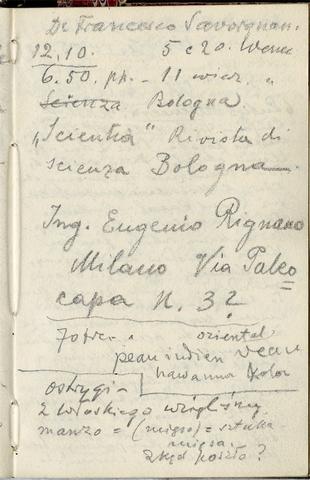 Dr Francesco Savorgnan.
12.10. 5 e 20.
6.50. pp. – 11 wiecz. "
Scienza Bologna.
„Scientia" Rivista di
scienza Bologna.
Ing. Eugenio Rignano
Milano Via Paleo
capa N. 3?
oriental
peau indien veau
hawanna kolor
ostrygi –
2 włoskiego wzięliśmy
manzo = (mięso) = sztuka
mięsa.
skąd poszło?